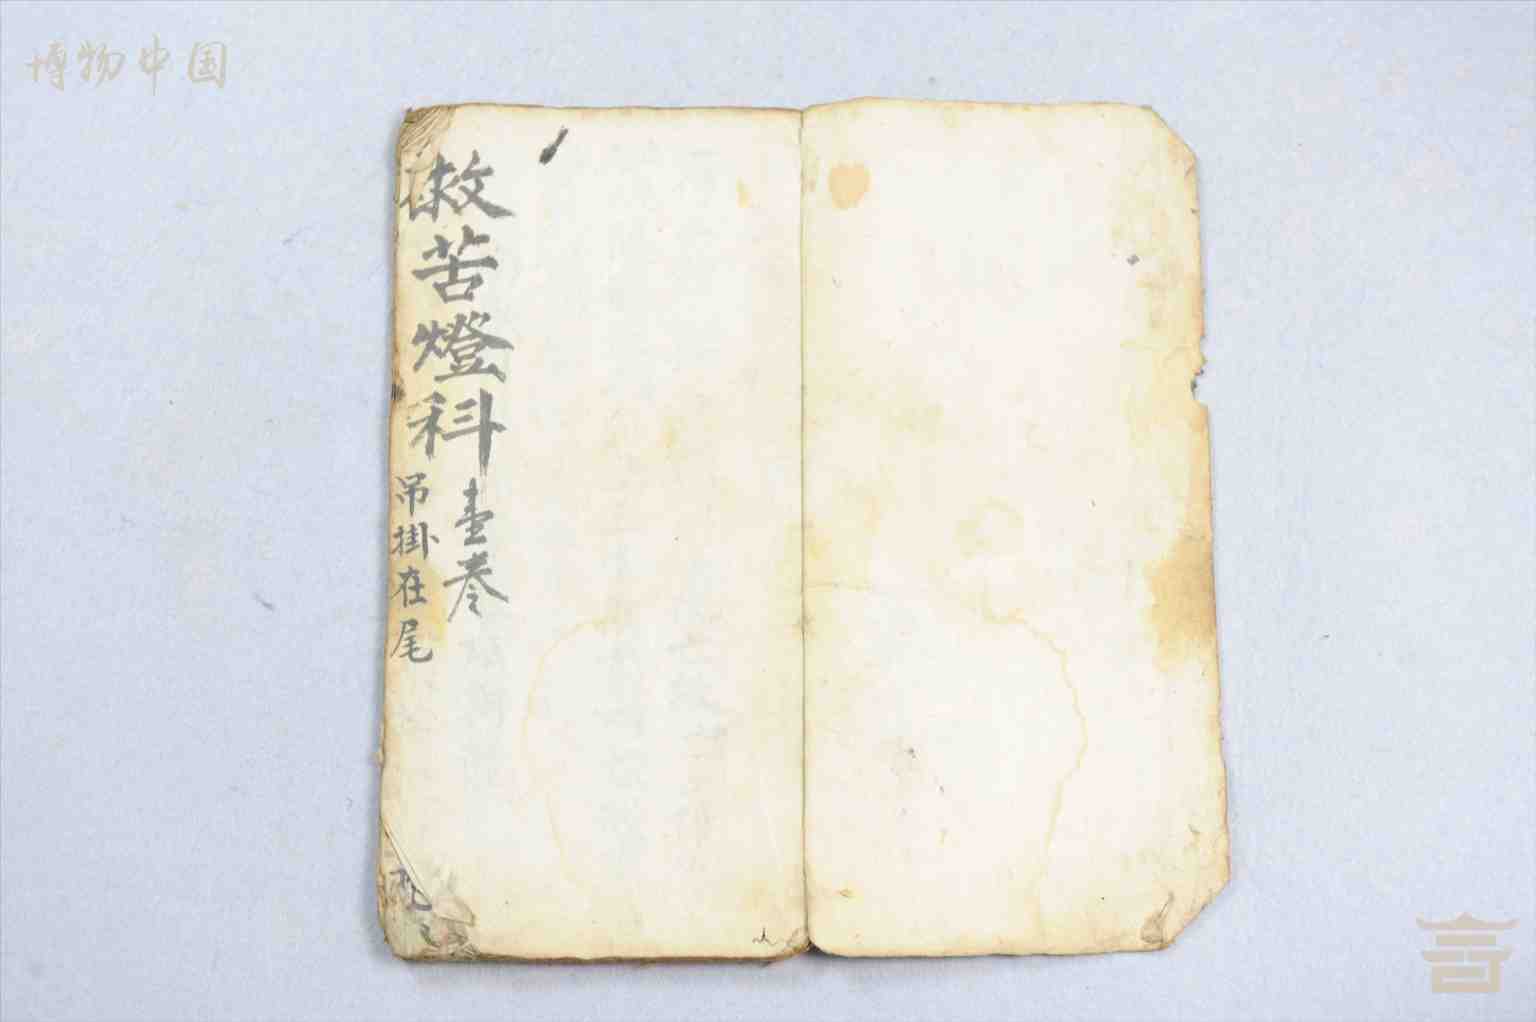 博物中国
救苦燈科壹卷
吊掛在尾